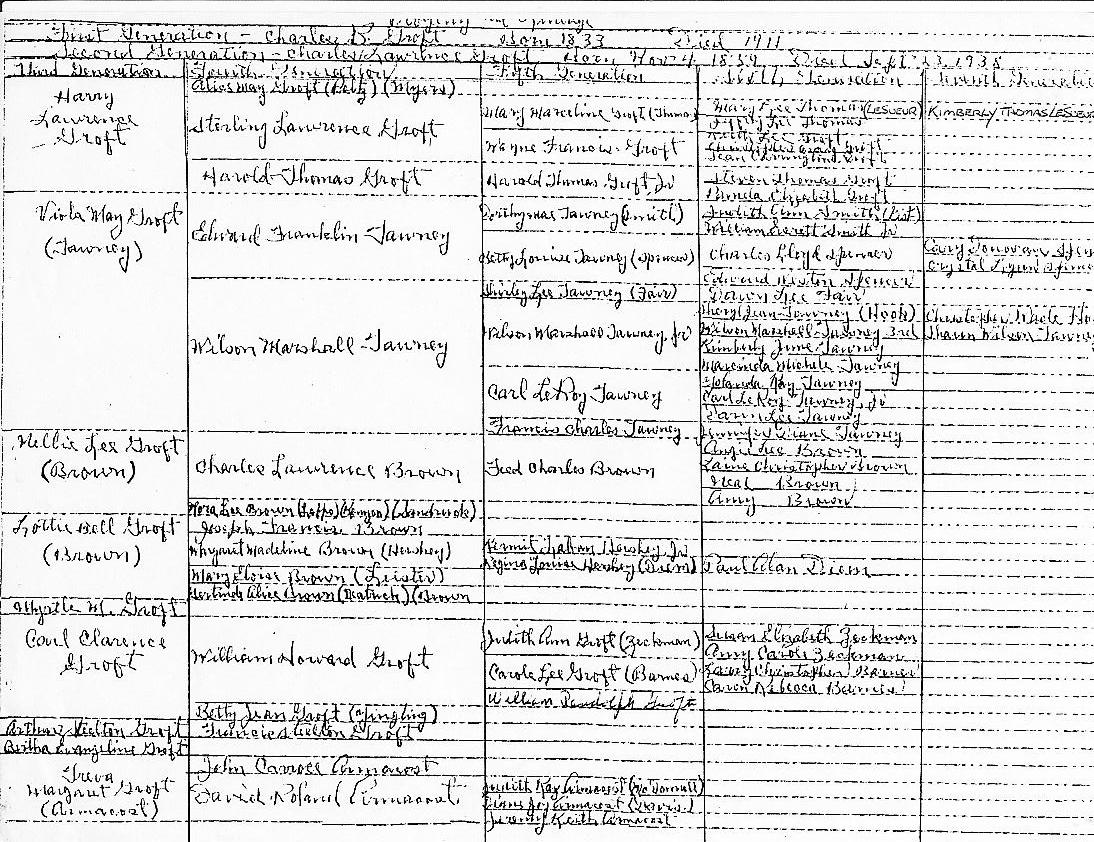 First Generation - Charles B. Groft Born 1833 Died 1911
Second Generation - Charles Lawrence Groft Born Nov 4, 1859 Died Sept 23, 1938
Third Generation Fourth Generation Fifth Generation Sixth Generation Seventh Generation
Harry
Lawrence
Groft
Alice May Groft (Myers)
Sterling Lawrence Groft
Mary Marceline Groft (Thomas
Mary Lee Thomas (LESUEUR)
KIMBERLY THOMAS LESUEUR
Lee Thomas
Wayne Francis Groft
Lee Groft
Christopher Craig Groft
Sean Groft
Harold Thomas Groft
Harold Thomas Groft Jr
Steven Thomas Groft
Elizabeth Groft
Viola May Groft
(Tawney)
Edward Franklin Tawney
Dorthymae Tawney (Smith)
Judith Ann Smith (List)
William Everett Smith Jr
Betty Louise Tawney (Spencer)
Charles Lloyd Spencer
Cary Donovan
Crystal
Edward Spencer
Wilson Marshall Tawney
Shirley Lee Tawney (Fair)
Dawn Lee Fair
Wilson Marshall Tawney, Jr
Sheryl Jean Tawney (Hook)
Christopher
Wilson Marshall Tawney 3rd
Shawn Wilson Tawney
Kimberly June Tawney
Marcinda Michele Tawney
Carl LeRoy Tawney
Yolanda Kay Tawney
Carl LeRoy Tawney, Jr
Lee Tawney
Francis Charles Tawney
Jennifer Diane Tawney
Nellie Lee Groft
(Brown)
Charles Lawrence Brown
Fred Charles Brown
Angie Lee Brown
Christopher Brown
Neal Brown
Amy Brown
Nora Lee Brown
Lottie Bell Groft
(Brown)
Joseph Francis Brown
Margaret Madeline Brown (Hershey)
Kermit Hershey Jr
Regina Louise Hershey (Diem)
Paul Alan Diem
Mary Eloise Brown (Leister)
Alice Brown (Brown
Myrtle M. Groft
Carl Clarence
Groft
William Howard Groft
Judith Ann Groft (Zeckman)
Susan Elizabeth Zeckman
Amy Carole Zeckman
Carole Lee Groft (Barnes)
Christopher Barnes
Caron Rebecca Barnes
William Randolph Groft
Betty Jean Groft (Yingling)
Arthur Groft
Francis Groft
Bertha Evangeline Groft
Treva
Margaret Groft
(Armacost)
John Carroll Armacost
David Roland Armacost
Judith Kay Armacost
Armacost
Jeremy Keith Armacost